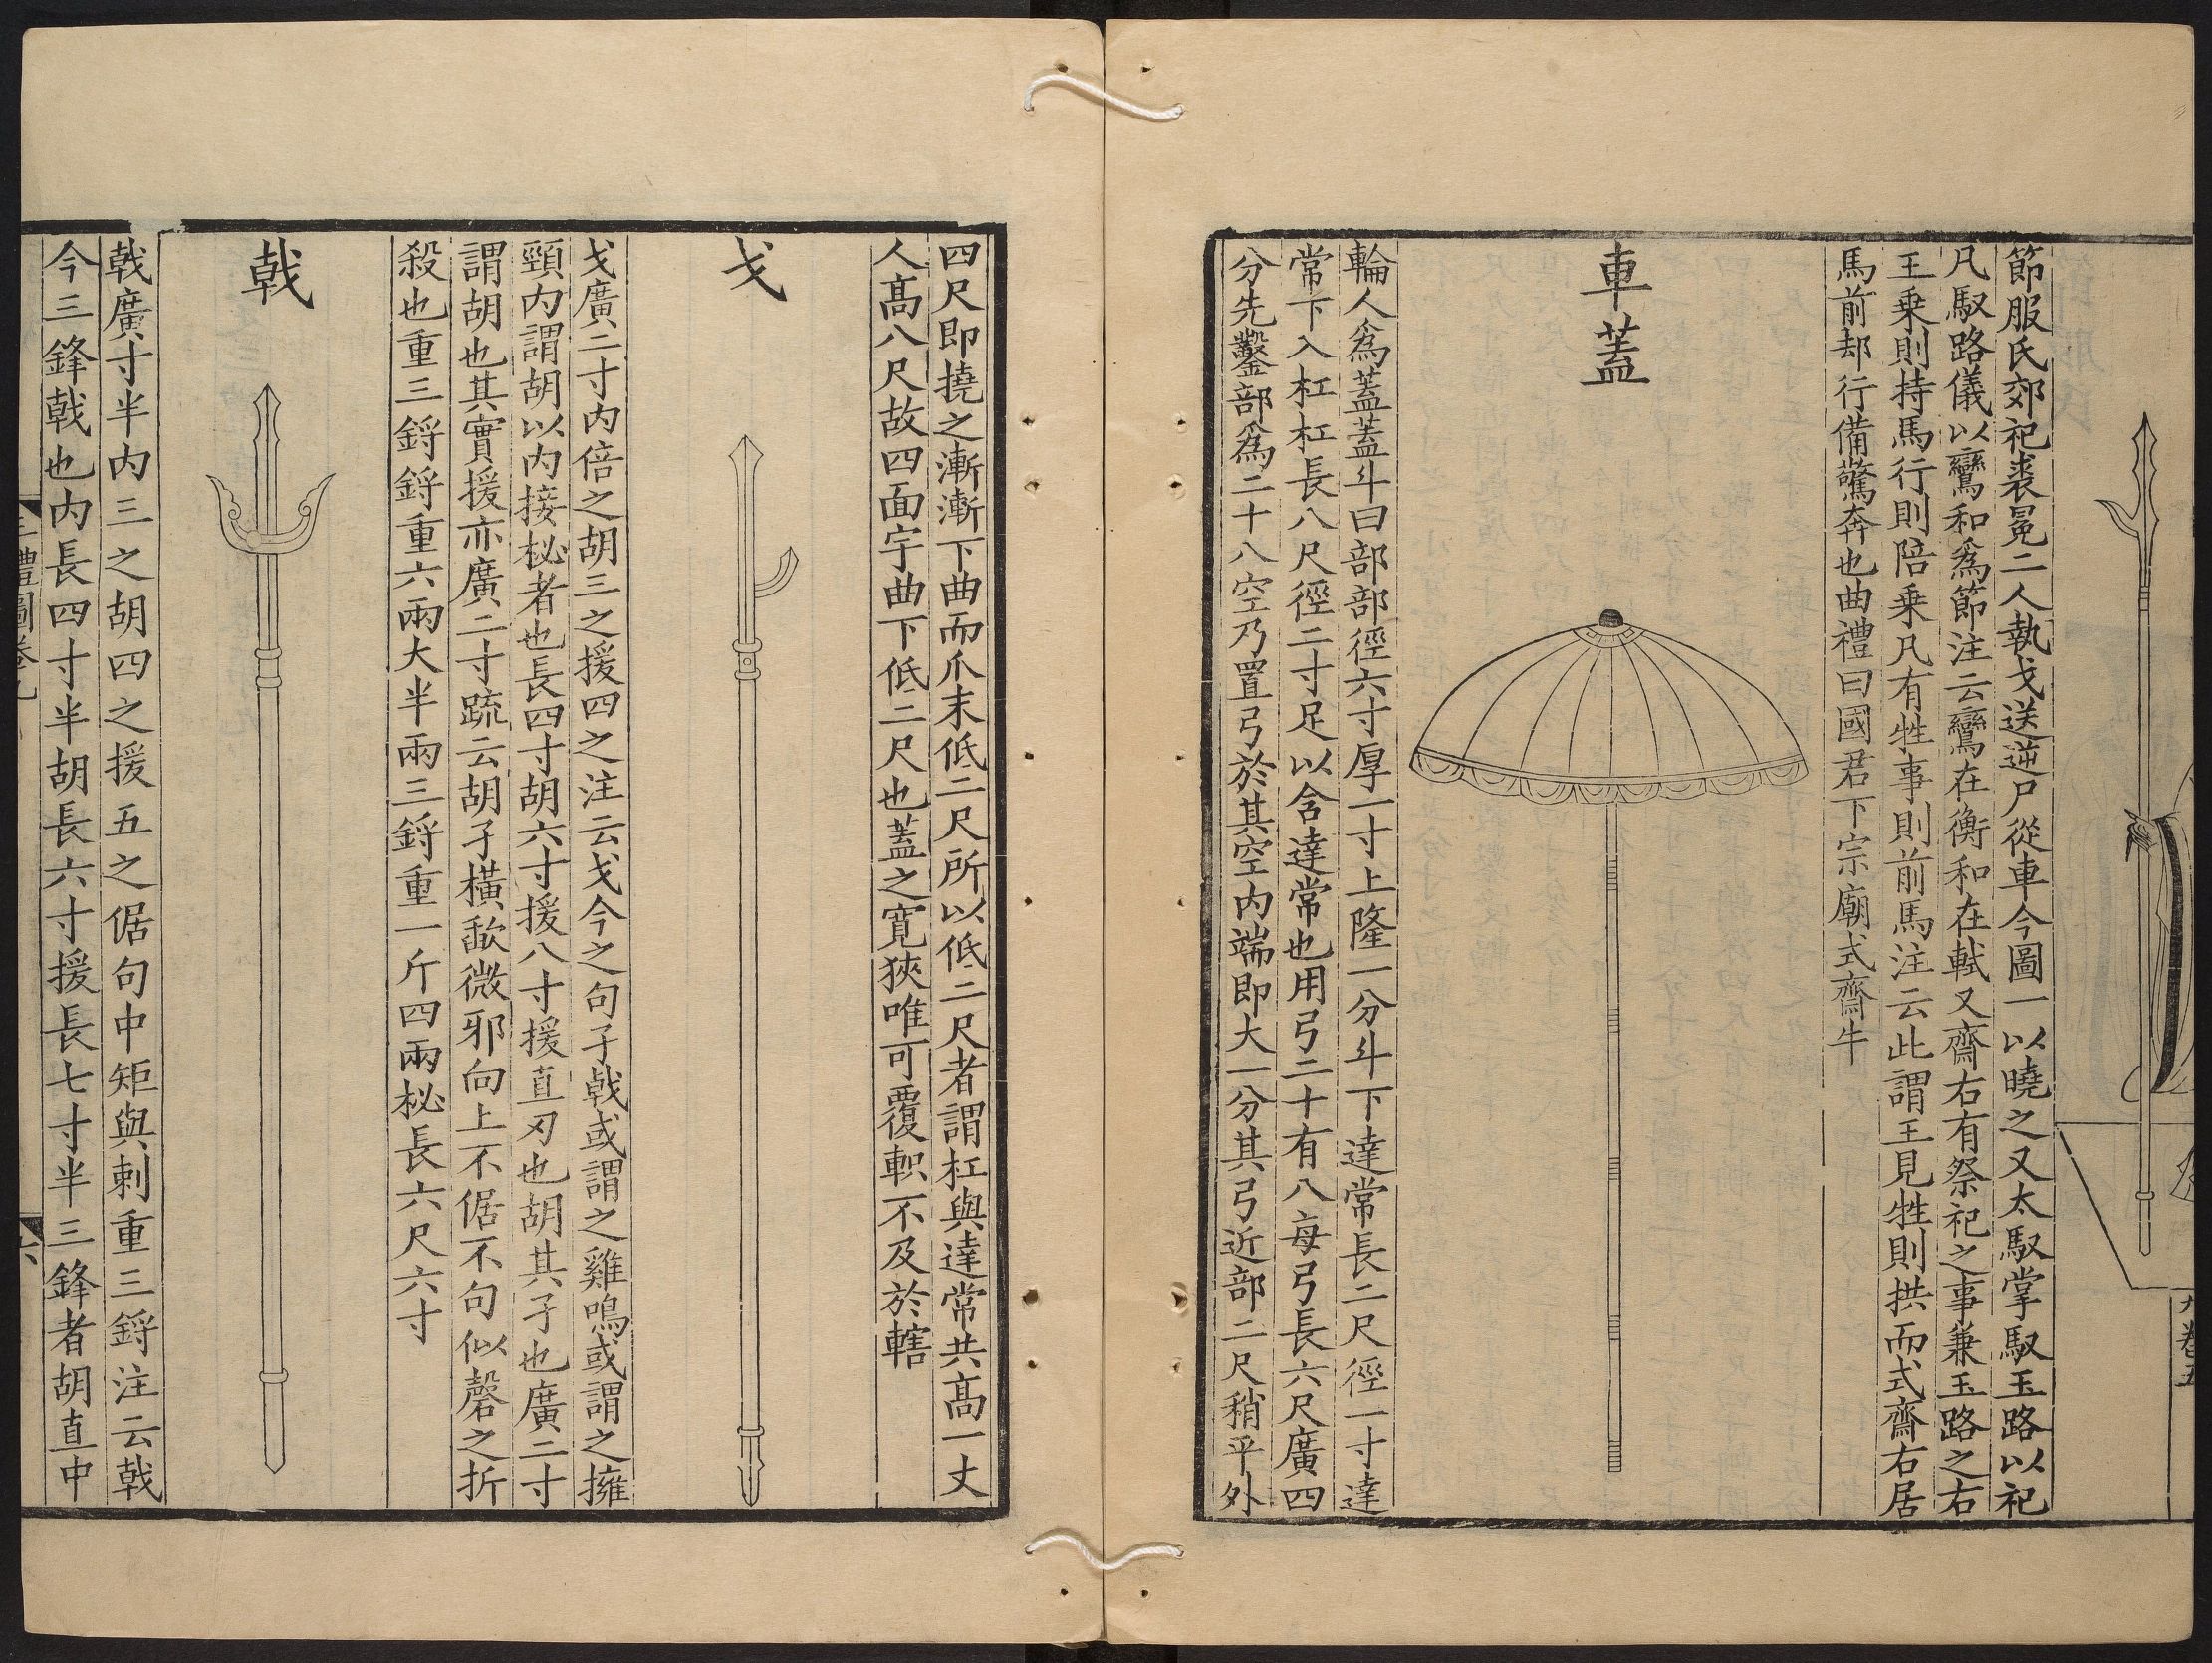 節服氏郊祀裘冕二人執戈送逆尸從車今圖一以曉之又太馭掌馭玉路以祀
凡馭路儀以鸞和爲節注云鸞在衡和在軾又齋右有祭祀之事兼玉路之右
王乗則持馬行則陪乗凡有牲事則前馬注云此謂王見牲則拱而式齋右居
馬前却行備驚奔也曲禮曰國君下宗廟式齋牛
車蓋
輪人爲蓋蓋斗曰部部徑六寸厚一寸上隆一分斗下達常長二尺徑一寸達
常下入杠杠長八尺徑二寸足以含達常也用弓二十有八每弓長六尺廣四
分先鑿部爲二十八空乃置弓於其空内端即大一分其弓近部二尺稍平外
四尺即撓之漸漸下曲而爪末低二尺所以低二尺者謂杠與達常共髙一丈
人髙八尺故四面宇曲下低二尺也蓋之寛狹唯可覆軹不及於轄
戈
戈廣二寸内倍之胡三之援四之注云戈今之句孑戟或謂之雞鳴或謂之擁
頸内謂胡以内接柲者也長四寸胡六寸援八寸援直刃也胡其孑也廣二寸
謂胡也其實援亦廣二寸疏云胡孑橫㨿微邪向上不倨不句似磬之折
殺也重三鋝鋝重六兩大半兩三鋝重一斤四兩柲長六尺六寸
戟
戟廣寸半内三之胡四之援五之倨句中矩與刺重三鋝注云戟
今三鋒戟也内長四寸半胡長六寸援長七寸半三鋒者胡直中
三禮圖卷九
六